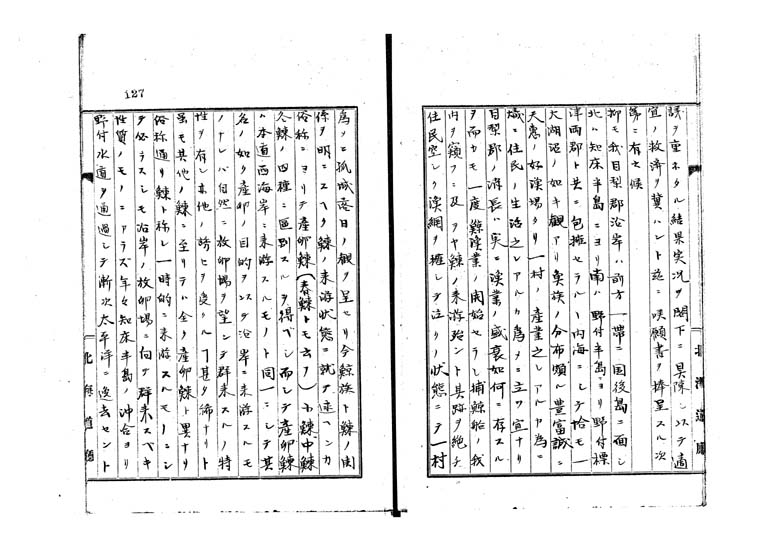 議ヲ重ネタル結果実況ヲ閣下ニ具陳シ以テ適
宜ノ救済ヲ冀ハント茲ニ哀願書ヲ捧呈スル次
第ニ有之候
抑モ我目梨郡沿岸ハ前方一帯ニ国後島ニ面シ
北ハ知床半島ニヨリ南ハ野付半島ニヨリ野付標
津両郡ト共ニ包擁セラルヽ内海ニシテ恰モ一
大湖沼ノ如キ観アリ魚族ノ分布頗ル豊富誠ニ
天恵ノ好漁場タリ一村ノ産業之レアルカ為ニ
熾ニ住民ノ生活之レアルカ為メニ立ツ宜ナリ
目梨郡ノ消長ハ実ニ漁業ノ盛衰如何ニ存スル
ヲ而カモ一度鱈漁業ノ開始セラレ捕鱈船ノ我
内ヲ窺フニ及ヒヤ鰊ノ来游殆ント其跡ヲ絶チ
住民空シク漁網ヲ擁シテ泣クノ状態ニテ一村
北海道庁
127
為メニ孤城落日ノ観ヲ呈セリ今鱈族ト鰊ノ関
係ヲ明ニスヘク鰊ノ来游状態ニ就テ述ヘンカ
俗称ニヨリテ産卵鰊(春鰊トモ云フ)小鰊中鰊
冬鰊ノ四種ニ区別スルヲ得ベシ而シテ産卵鰊
ハ本道西海岸ニ来游スルモノト同一ニシテ其
名ノ如ク産卵ノ目的ヲ以テ沿岸ニ来游スルモ
ノナレバ自然ニ放卵場ヲ望ンデ群来スルノ特
性ヲ有シ其他ノ誘ヒヲ受クルヿ甚タ稀ナリト
雖モ其他ノ鰊ニ至リテハ全ク産卵鰊ト異ナリ
俗称通リ鰊ト称シ一時的ニ来游スルモノニシ
テ必ラスシモ沿岸ノ放卵場ニ向テ群来スベキ
性質ノモノニアラズ年々知床半島ノ沖合ヨリ
野付水道ヲ通過シテ漸次太平洋ニ逸去セント
北海道庁